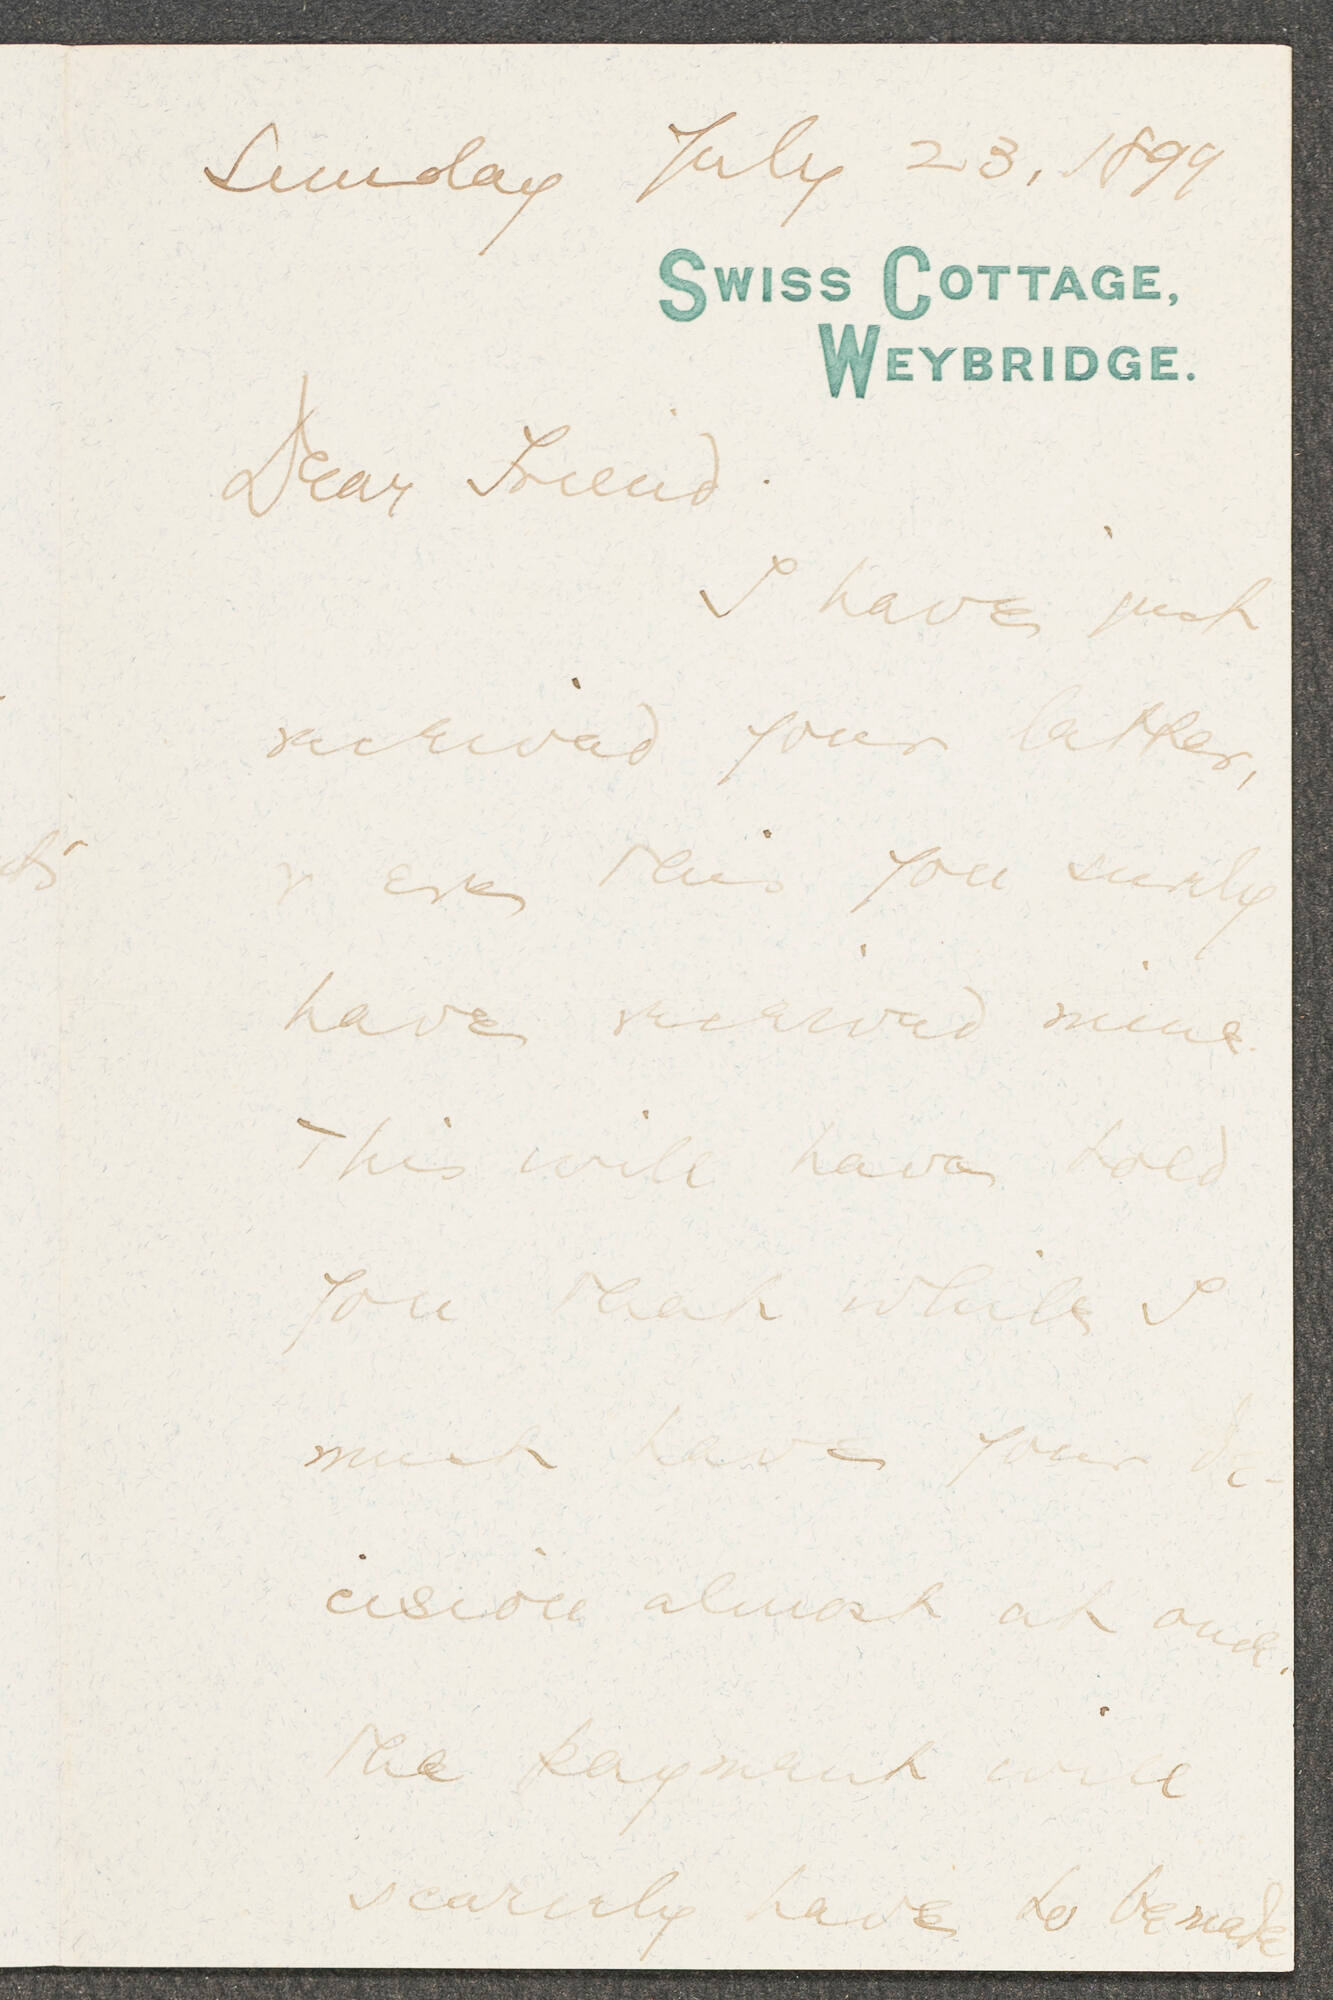 Sunday July 23, 1899
SWISS COTTAGE,
WEYBRIDGE.
Dear Friend.
I have just
received your letter,
& ere this you surely
have received mine.
This will have told
you that while I
must have your de-
cision almost at once.
the payment will
scarcely have to be made